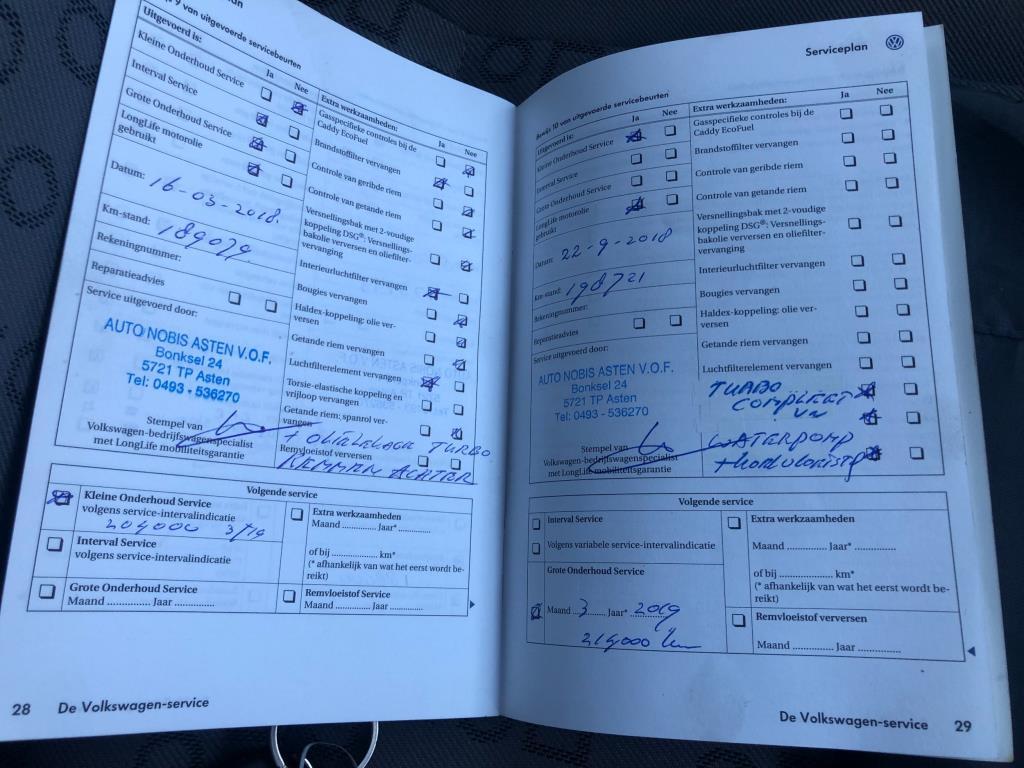 9 van uitgevoerde servicebeurten
Uitgevoerd is:
Ja
Nee
Kleine Onderhoud Service
Interval Service
Grote Onderhoud Service
LongLife motorolie
gebruikt
Datum: 16-03-2018.
Km-stand: 189079
Rekeningnummer:
Reparatieadvies
Service uitgevoerd door:
AUTO NOBIS ASTEN V.O.F.
Bonksel 24
5721 TP Asten
Tel: 0493 - 536270
Stempel van
Volkswagen-bedrijfswagenspecialist
met LongLife mobiliteitsgarantie
Extra werkzaamheden:
Ja
Nee
Gasspecifieke controles bij de
Caddy EcoFuel
Brandstoffilter vervangen
Controle van geribde riem
Controle van getande riem
Versnellingsbak met 2-voudige
koppeling DSG®: Versnellings-
bakolie verversen en oliefilter-
vervanging
Interieurluchtfilter vervangen
Bougies vervangen
Haldex-koppeling: olie ver-
versen
Getande riem vervangen
Luchtfilterelement vervangen
Torsie-elastische koppeling en
vrijloop vervangen
Getande riem; spanrol ver-
vangen
TURBO
Remvloeistof verversen
REMMEN ACHTER
Volgende service
Kleine Onderhoud Service
volgens service-intervalindicatie
204000 3/19
Interval Service
volgens service-intervalindicatie
Grote Onderhoud Service
Maand .............. Jaar .............
Extra werkzaamheden
Maand ............ Jaar* ............
of bij ................ km*
(* afhankelijk van wat het eerst wordt be-
reikt)
Remvloeistof Service
Maand ............ Jaar ............
28 De Volkswagen-service
Serviceplan
Bewijs 10 van uitgevoerde servicebeurten
Uitgevoerd is:
Ja
Nee
Kleine Onderhoud Service
Interval Service
Grote Onderhoud Service
LongLife motorolie
gebruikt
Datum: 22-9-2018
Km-stand: 198721
Rekeningnummer:
Reparatieadvies
Service uitgevoerd door:
AUTO NOBIS ASTEN V.O.F.
Bonksel 24
5721 TP Asten
Tel: 0493 - 536270
Stempel van
Volkswagen-bedrijfswagenspecialist
met LongLife mobiliteitsgarantie
Extra werkzaamheden:
Ja
Nee
Gasspecifieke controles bij de
Caddy EcoFuel
Brandstoffilter vervangen
Controle van geribde riem
Controle van getande riem
Versnellingsbak met 2-voudige
koppeling DSG®: Versnellings-
bakolie verversen en oliefilter-
vervanging
Interieurluchtfilter vervangen
Bougies vervangen
Haldex-koppeling: olie ver-
versen
Getande riem vervangen
Luchtfilterelement vervangen
TURBO
COMPLEET
VN
WATERPOMP
Volgende service
Interval Service
Volgens variabele service-intervalindicatie
Grote Onderhoud Service
Maand 3 Jaar* 2019
214000 km
Extra werkzaamheden
Maand .............. Jaar* ..............
of bij ................ km*
(* afhankelijk van wat het eerst wordt be-
reikt)
Remvloeistof verversen
Maand .............. Jaar ..............
De Volkswagen-service 29